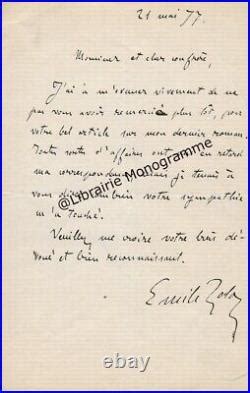 21 mai 77.
Monsieur et cher confrère,
J'ai à m'excuser vivement de ne
pas vous avoir remercié plus tôt, pour
votre bel article sur mon dernier roman.
Toutes sortes d'affaires ont en retard
ma correspondance je tenais à
vous dire combien votre sympathie
m'a touché.
Veuillez me croire votre bien dé-
voué et bien reconnaissant.
Emile Zola
@Librairie Monogramme